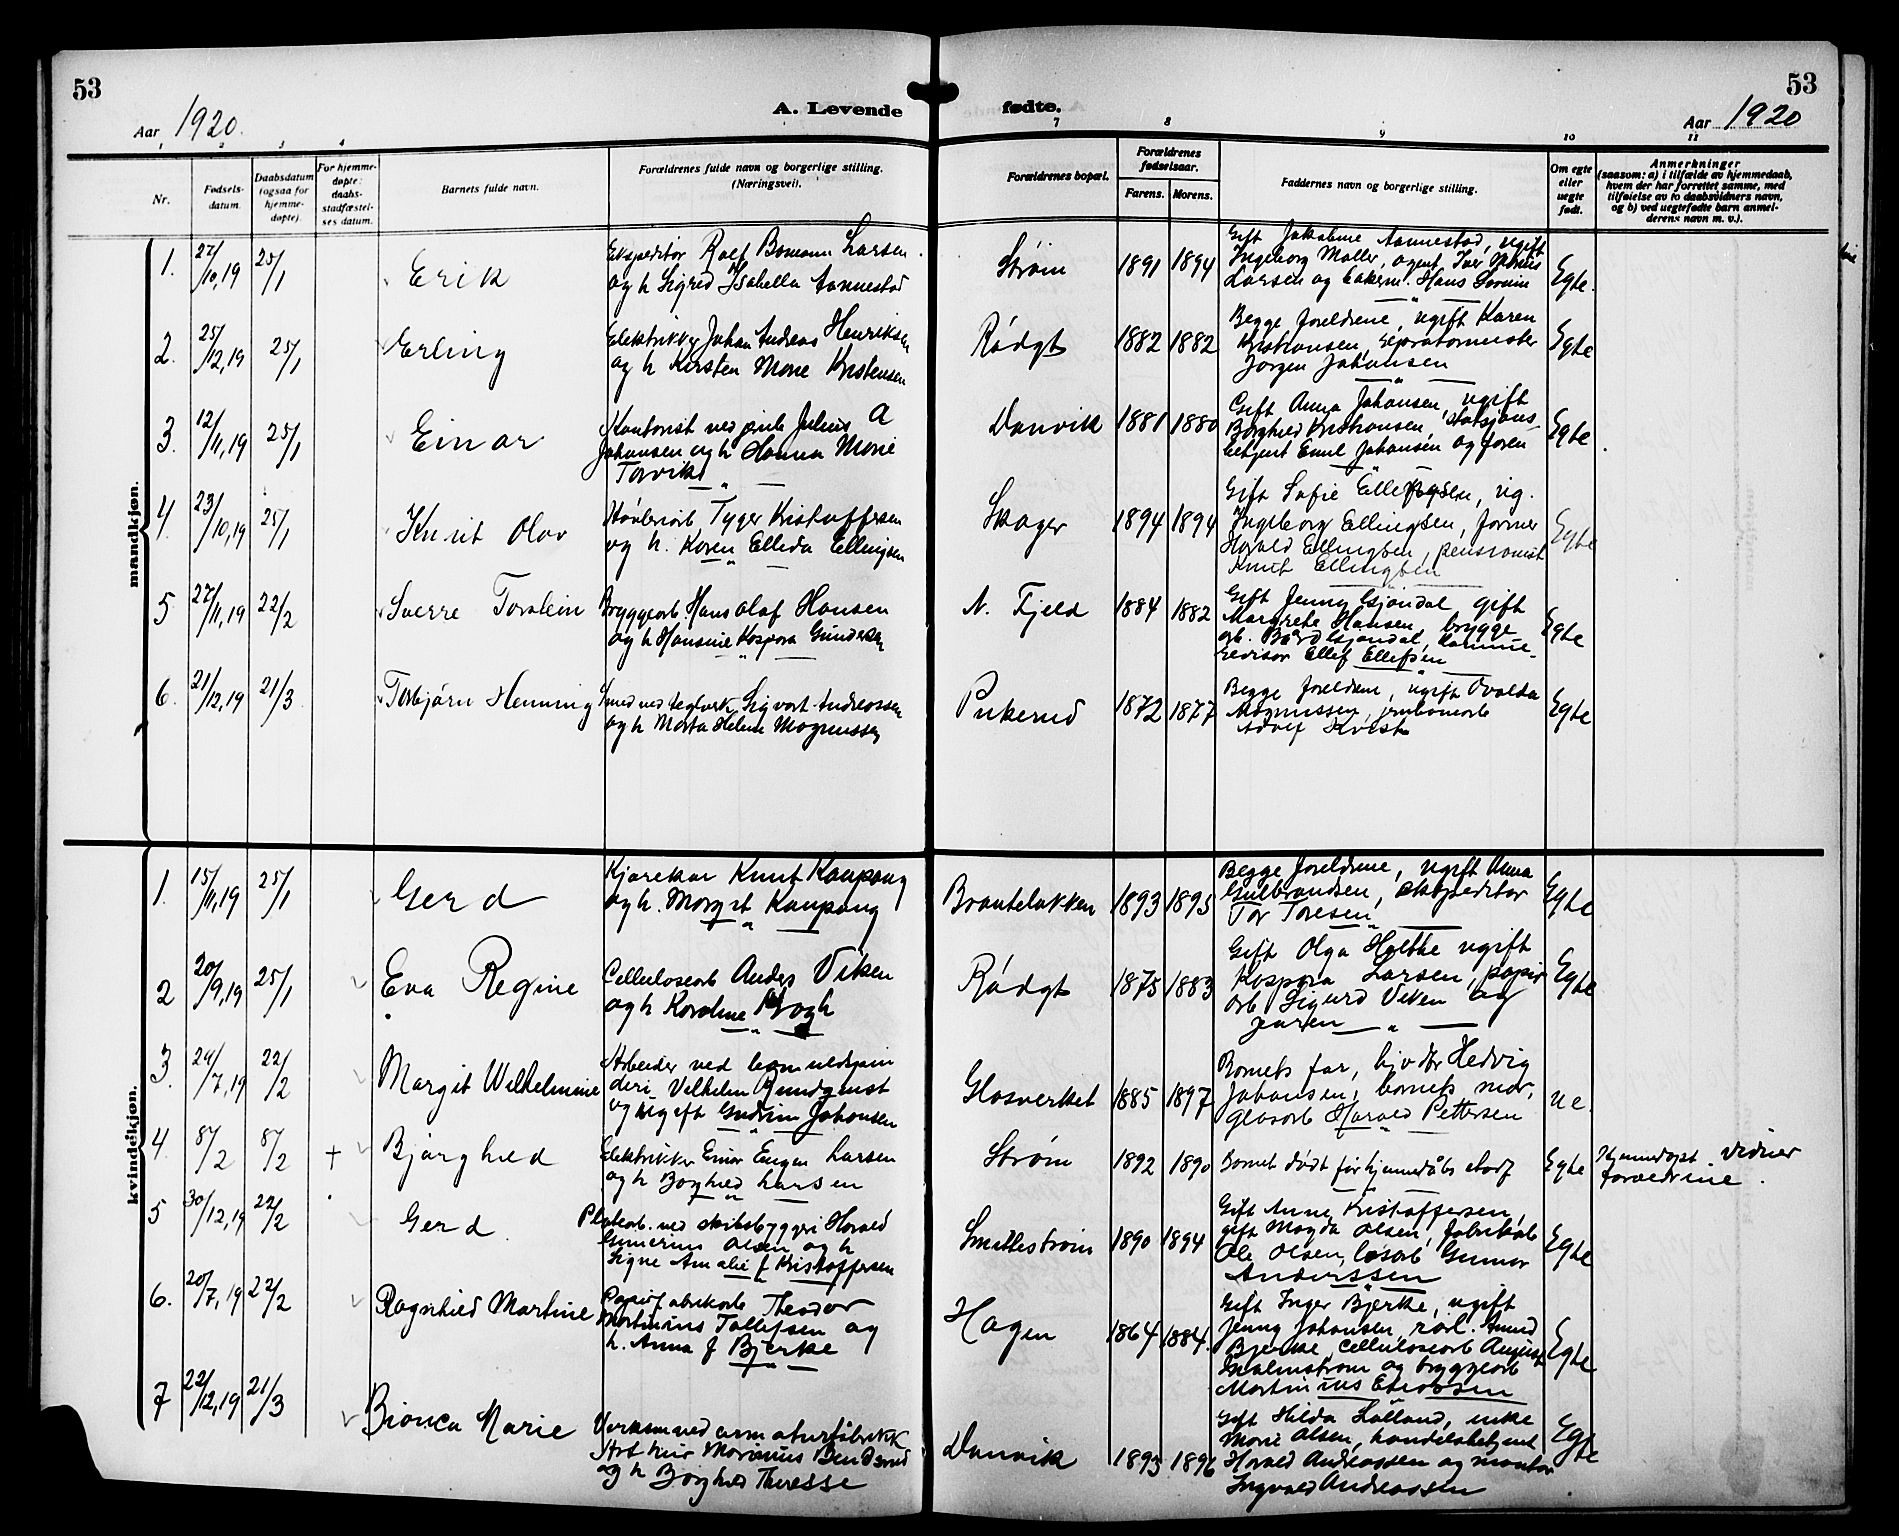 53
53
A. Levende
fødte.
Aar 1920.
Aar 1920
1 2 3 4 7 8 9 10 11
Nr.
Fødsels-
datum.
Daabsdatum
(ogsaa for
hjemme-
døpte).
For hjemme-
døpte:
daabs-
stadfæstel-
ses datum.
Barnets fulde navn.
Forældrenes fulde navn og borgerlige stilling.
(Næringsvei).
Forældrenes bopæl.
Forældrenes
fødselsaar.
Farens. Morens.
Faddernes navn og borgerlige stilling.
Om egte
eller
uegte
født.
Anmerkninger
(saasom: a) i tilfælde av hjemmedaab,
hvem der har forrettet samme, med
tilføielse av to daabsvidners navn,
og b) ved uegtefødte barn anmel-
derens navn m. v.).
mandkjøn.
1. 27/10,19 25/1 Erik
Ekspeditør Rolf Bomann Larsen
og h Sigrid Isabella Aannestad
Strøm 1891 1894
Gift Jakobine Aannestad, ugift
Ingeborg Møller, agent Iver
Larsen og bakerm. Hans
Egte.
2. 25/12,19 25/1 Erling
Elektrikker Johan Andreas Henriksen
og h Kirsten Marie Kristensen
Rødgt 1882 1882
Begge foreldrene, ugift Karen
Kristiansen, separatormester
Jørgen Johansen
Egte
3. 12/11,19 25/1 Einar
Kontorist ved Julius A
Johansen og h Hanna Marie
Torvik
Danvik 1881 1880
Gift Anna Johansen, ugift
Borghild Kristiansen, statsjons-
betjent Emil Johansen og faren
Egte
4. 23/10,19 25/1 Knut Olav
Høvleriarb Tyger Kristoffersen
og h. Karen Elleda Ellingsen
Skoger 1894 1894
Gift Sofie Ellefsen, ug.
Ingeborg Ellingsen, former
Harald Ellingsen, pensionist
Knut Ellingsen
Egte
5 27/11,19 22/2 Sverre Torstein
Bryggearb. Hans Olaf Hansen
og h Hansine Kaspara Gundersen
N. Fjeld 1884 1882
Gift Jenny Isjøndal, gift
Margrete Hansen, brygge-
arb. Bård Isjøndal,
revisor Ellef Ellefsen
Egte
6. 21/12,19 21/3 Torbjørn Henning
Smed ved teglverk Sigvart Andreassen
og h Marta Helene Magnussen
Pukerud 1872 1877
Begge foreldrene, ugift Ovalda
Magnussen, jernbanearb
Adolf Kvist
Egte
kvindekjøn.
1. 15/11,19 25/1 Gerd
Kjørekar Knut Kaupang
og h. Margit Kaupang
Branteløkken 1893 1895
Begge foreldrene, ugift Anna
Gulbrandsen, ekspeditør
Tor Toresen
Egte
2 20/9,19 25/1 Eva Regine
Cellulosearb Anders Viken
og h Karoline Krogh
Rødgt 1875 1883
Gift Olga Holtke ugift
Kaspara Larsen, papir
arb Sigurd Viken og
faren
Egte
3. 24/7,19 22/2 Margit Wilhelmine
Arbeider ved bomuldspin
deri Vilhelm Rundquist
og ugift Gudrun Johansen
Glasverket 1885 1897
Barnets far, Hedvig
Johansen, barnets mor,
glasarb Harald Pettersen
ue.
4. 8/2 8/2 + Bjørghild
Elektrikker Einar Eugen Larsen
og h Borghild Larsen
Strøm 1892 1890
Barnet dødt før hjemmedåbs stadf
Egte
Hjemmedøpt. Vidner
forældrene.
5 30/12,19 22/2 Gerd
Platearb. ved skibsbyggeri Harald
Gunerius Olsen og h
Signe Amalie f Kristoffersen
Smithestrøm 1890 1894
Gift Anne Kristoffersen,
gift Magda Olsen, fabrikarb
Ole Olsen, losarb Gunnar
Anderssen
Egte
6. 20/7,19 22/2 Ragnhild Martine
Papirfabrikarb Theodor
Martinius Tollefsen og
h. Anna f Bjerke
Hagen 1864 1884.
Gift Inger Bjerke, ugift
Jenny Johansen, rørl. Amund
Bjerke, cellulosearb August
Malmstrøm og bryggearb
Martinius
Egte
7 22/12,19 21/3 Bianca Marie
Verksm ved armaturfabrikk
Arthur Marinius Bendersrud
og h Borghild Therese
Danvik 1895 1896
Gift Hilda Lølland, enke
Marie Olsen, handelsbetjent
Harald Andreassen og montør
Ingvald Andreassen
Egte